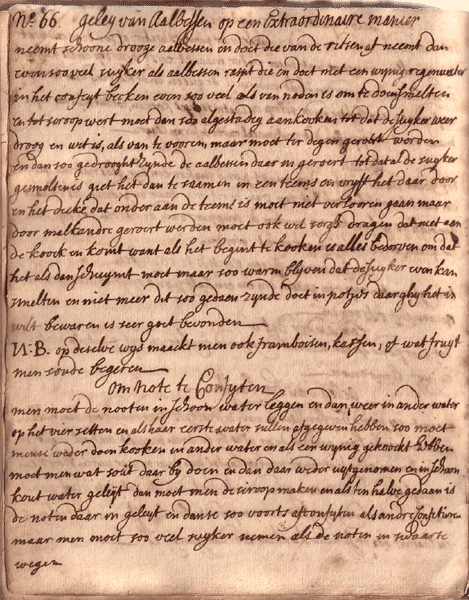 No 66. geley van Aalbessen op een Extraordinaire manier
neemt schoone drooge aalbessen en doet die van de ritsen af neemt dan
even soo veel suyker als aalbessen raspt die en doet met een wijnig regenwater
in het confeyt becken even soo veel als van noden is om te doen smelten
en tot siroop wert moet dan soo algestadeg aenkooken tot dat de suyker weer
droog en wit is, als van te vooren, maar moet ter degen geroert worden
en dan soo gedrooght zynde de aalbessen daar in geroert tot dat al de suyker
gesmolten is giet het dan te saamen in een teems en vryft het daar door
en het dicke dat onder aan de teems is moet niet verlooren gaan maar
door malkandre geroert werden moet ook wel sorgh dragen dat niet aan
de koock en komt want als het begint te kooken is alles bedorven om dat
het als dan schuymt moet maar soo warm blyven dat de suyker even kan
smelten en niet meer dit soo gedaen zynde doet in potjes daar ghy het in
wilt bewaren is seer goet bevonden
N:B. op deselve wys maackt men ook framboisen, karsen, of wat fruyt
men soude begeren
om Note te Confyten
men moet de nooten in schoon water leggen en dan weer in ander water
op het vier setten en als haar eerste water sullen afgegeven hebben soo moet
mense weder doen kooken in ander water en als een wynig gekookt hebben
moet men wat sout daar by doen en dan daar weder uytgenomen en in schoon
kout water geleyt dan moet men de siroop maken en als ten halve gedaan is
de noten daar in geleyt en danse soo voorts afconfyten als andre Confituren
maar men moet soo veel suyker nemen als de noten in swaarte
wegen